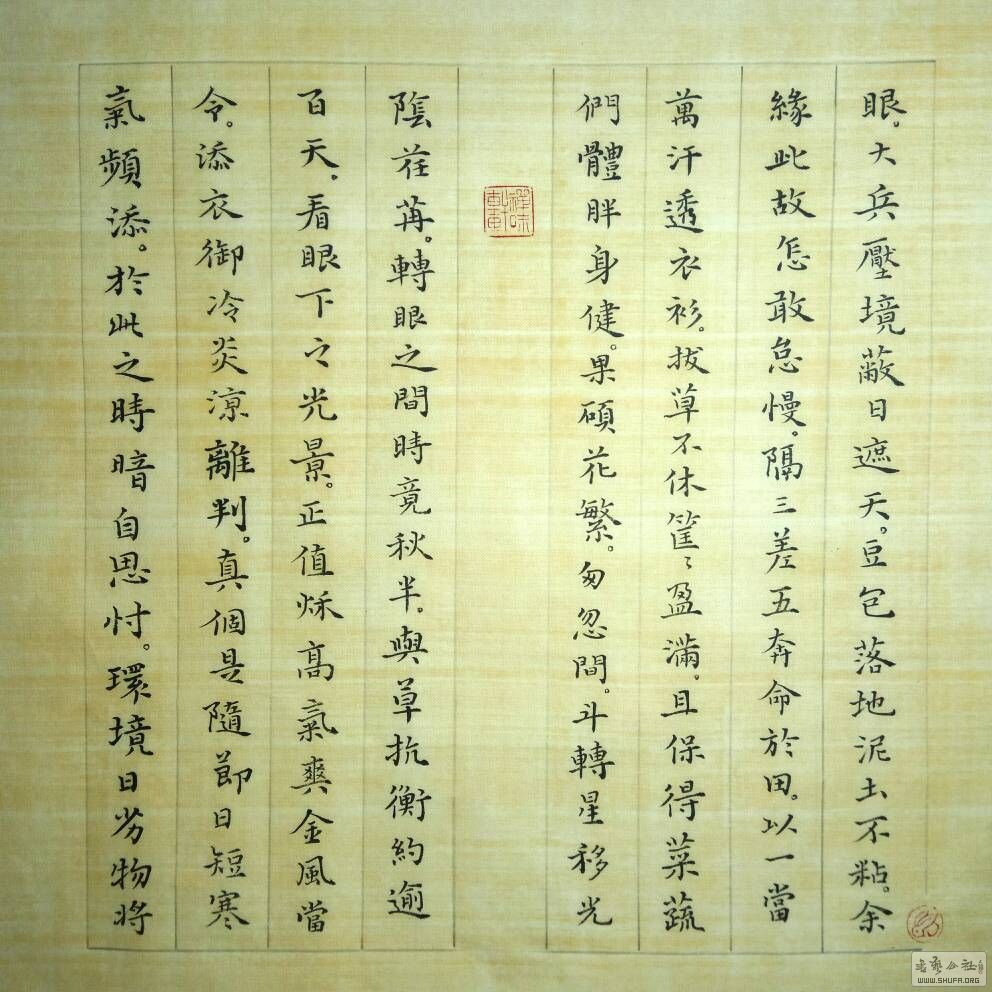 眼。大兵壓境蔽日遮天。豆包落地泥土不粘。余
緣此故怎敢怠慢。隔三差五奔命於田。以一當
萬汗透衣衫。拔草不休筐〻盈滿。且保得菜蔬
們體胖身健。果碩花繁。匆忽間。斗轉星移光
陰荏苒。轉眼之間時竟秋半。與草抗衡約逾
百天。看眼下之光景。正值秌高氣爽金風當
令。添衣御冷炎涼離判。真個是隨節日短寒
氣頻添。於此之時暗自思忖。環境日劣物將
書藝公社
WWW.SHUFA.ORG